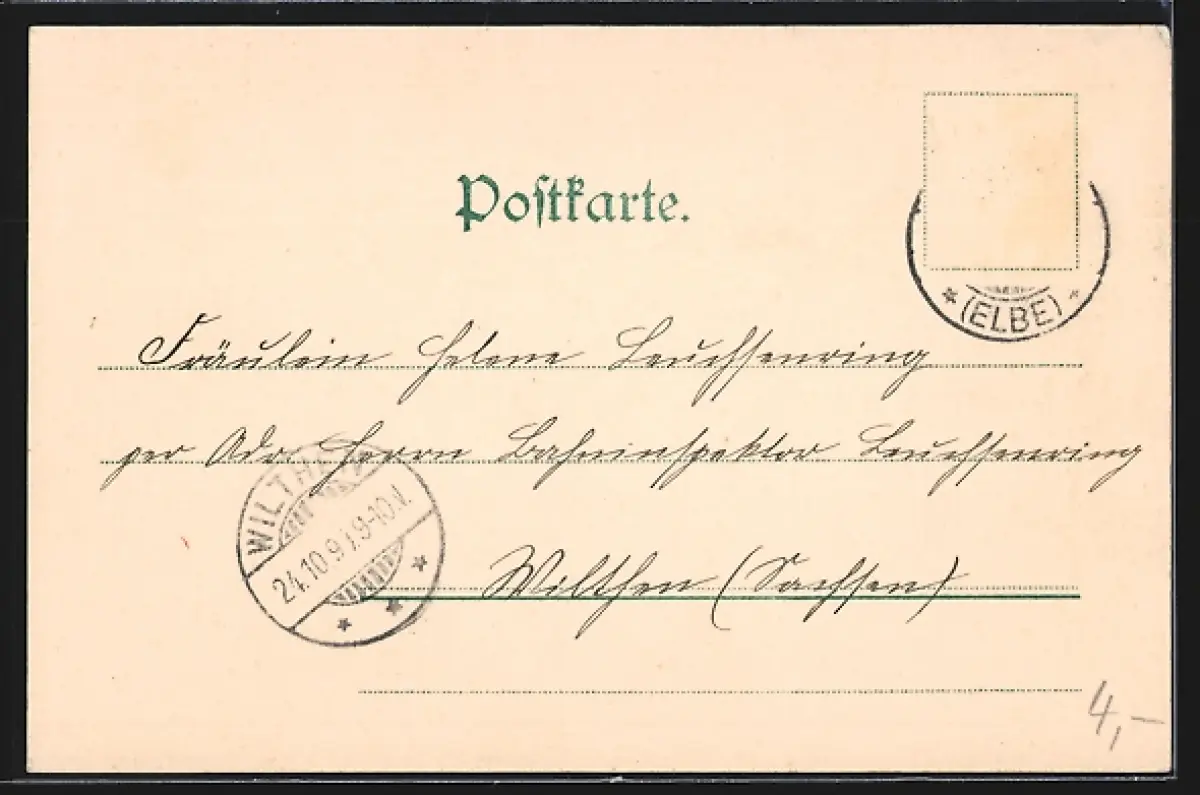 Postkarte.
(ELBE)
Fräulein Helene Leuchsenring
per Adr. Herrn Bahninspektor Leuchsenring
WILTHEN
24.10.9 .9-10.N.
Wilthen (Sachsen)
4,-